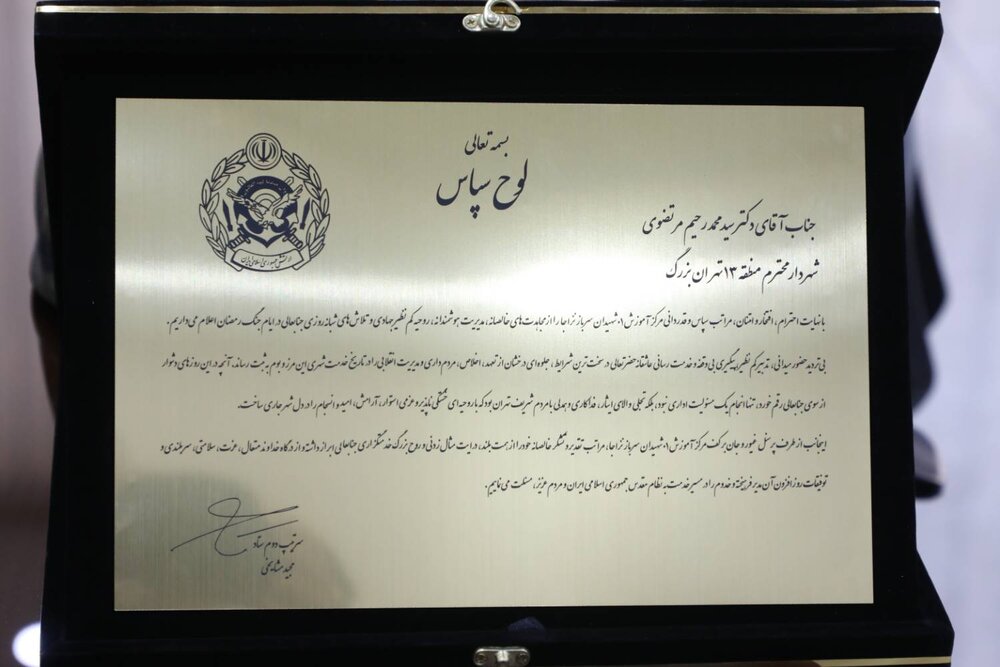 بسمه تعالی
لوح سپاس
جناب آقای دکتر سید محمد رحیم مرتضوی
شهردار محترم منطقه ۱۳ تهران بزرگ
با نهایت احترام، افتخار و امتنان، مراتب سپاس و قدردانی مرکز آموزش ۰۱ شهیدان سرباز نزاجا را از مجاهدت‌های خالصانه، مدیریت هوشمندانه، روحیه کم نظیر جهادی و تلاش‌های شبانه روزی جنابعالی در ایام جنگ رمضان اعلام می‌داریم.
بی تردید حضور میدانی، تدبیر کم نظیر، پیگیری بی وقفه و خدمت رسانی عاشقانه حضرتعالی در سخت‌ترین شرایط، جلوه‌ای درخشان از تعهد، اخلاص، مردم داری و مدیریت انقلابی را در تاریخ خدمت شهری این مرز و بوم به ثبت رساند. آنچه در این روزهای دشوار
از سوی جنابعالی رقم خورد، تنها انجام یک مسئولیت اداری نبود، بلکه تجلی والای ایثار، فداکاری و همدلی با مردم شریف تهران بود که با روحیه‌ای خستگی ناپذیر و عزمی استوار، آرامش، امید و انسجام را در دل شهر جاری ساخت.
اینجانب از طرف پرسنل غیور و جان بر کف مرکز آموزش ۰۱ شهیدان سرباز نزاجا، مراتب تقدیر و تشکر خالصانه خود را از همت بلند، درایت مثال زدنی و روح بزرگ خدمتگزاری جنابعالی ابراز داشته و از درگاه خداوند متعال، عزت، سلامتی، سربلندی و
توفیقات روز افزون آن مدیر فرهیخته و خدوم را در مسیر خدمت به نظام مقدس جمهوری اسلامی ایران و مردم عزیز، مسئلت می‌نماییم.
سرتیپ دوم ستاد
مجید مشایخی
ارتش جمهوری اسلامی ایران